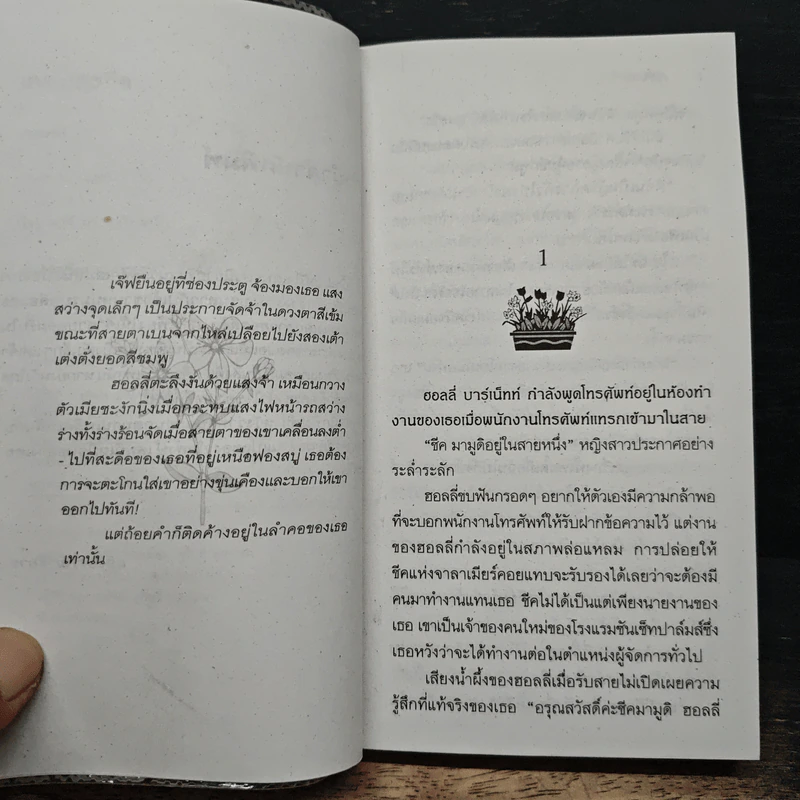 เจ๊ฟยืนอยู่ที่ช่องประตู จ้องมองเธอ แสง
สว่างจุดเล็กๆ เป็นประกายจัดจ้าในดวงตาสีเข้ม
ขณะที่สายตาเบนจากไหล่เปลือยไปยังสองเต้า
เต่งตั่งยอดสีชมพู
ฮอลลี่ตะลึงงันด้วยแสงจ้า เหมือนกวาง
ตัวเมียชะงักนิ่งเมื่อกระทบแสงไฟหน้ารถสว่าง
ร่างทั้งร่างร้อนจัดเมื่อสายตาของเขาเคลื่อนลงต่ำ
- ไปที่สะดือของเธอที่อยู่เหนือฟองสบู่ เธอต้อง
การจะตะโกนใส่เขาอย่างขุ่นเคืองและบอกให้เขา
ออกไปทันที!
แต่ถ้อยคำก็ติดค้างอยู่ในลำคอของเธอ
เท่านั้น
1
ฮอลลี่ บาร์เน็ทท์ กำลังพูดโทรศัพท์อยู่ในห้องทำ
งานของเธอเมื่อพนักงานโทรศัพท์แทรกเข้ามาในสาย
“ชีค มามูดิอยู่ในสายหนึ่ง” หญิงสาวประกาศอย่าง
ระล่ำระลัก
ฮอลลี่ขบฟันกรอดๆ อยากให้ตัวเองมีความกล้าพอ
ที่จะบอกพนักงานโทรศัพท์ให้รับฝากข้อความไว้ แต่งาน
ของฮอลลี่กำลังอยู่ในสภาพล่อแหลม การปล่อยให้
ชีคแห่งจาลาเมียร์คอยแทบจะรับรองได้เลยว่าจะต้องมี
คนมาทำงานแทนเธอ ชีคไม่ได้เป็นแต่เพียงนายงานของ
เธอ เขาเป็นเจ้าของคนใหม่ของโรงแรมซันเซ็ทปาล์มส์ซึ่ง
เธอหวังว่าจะได้ทำงานต่อในตำแหน่งผู้จัดการทั่วไป
เสียงน้ำผึ้งของฮอลลี่เมื่อรับสายไม่เปิดเผยความ
รู้สึกที่แท้จริงของเธอ “อรุณสวัสดิ์ค่ะชีคมามูดิ ฮอลลี่